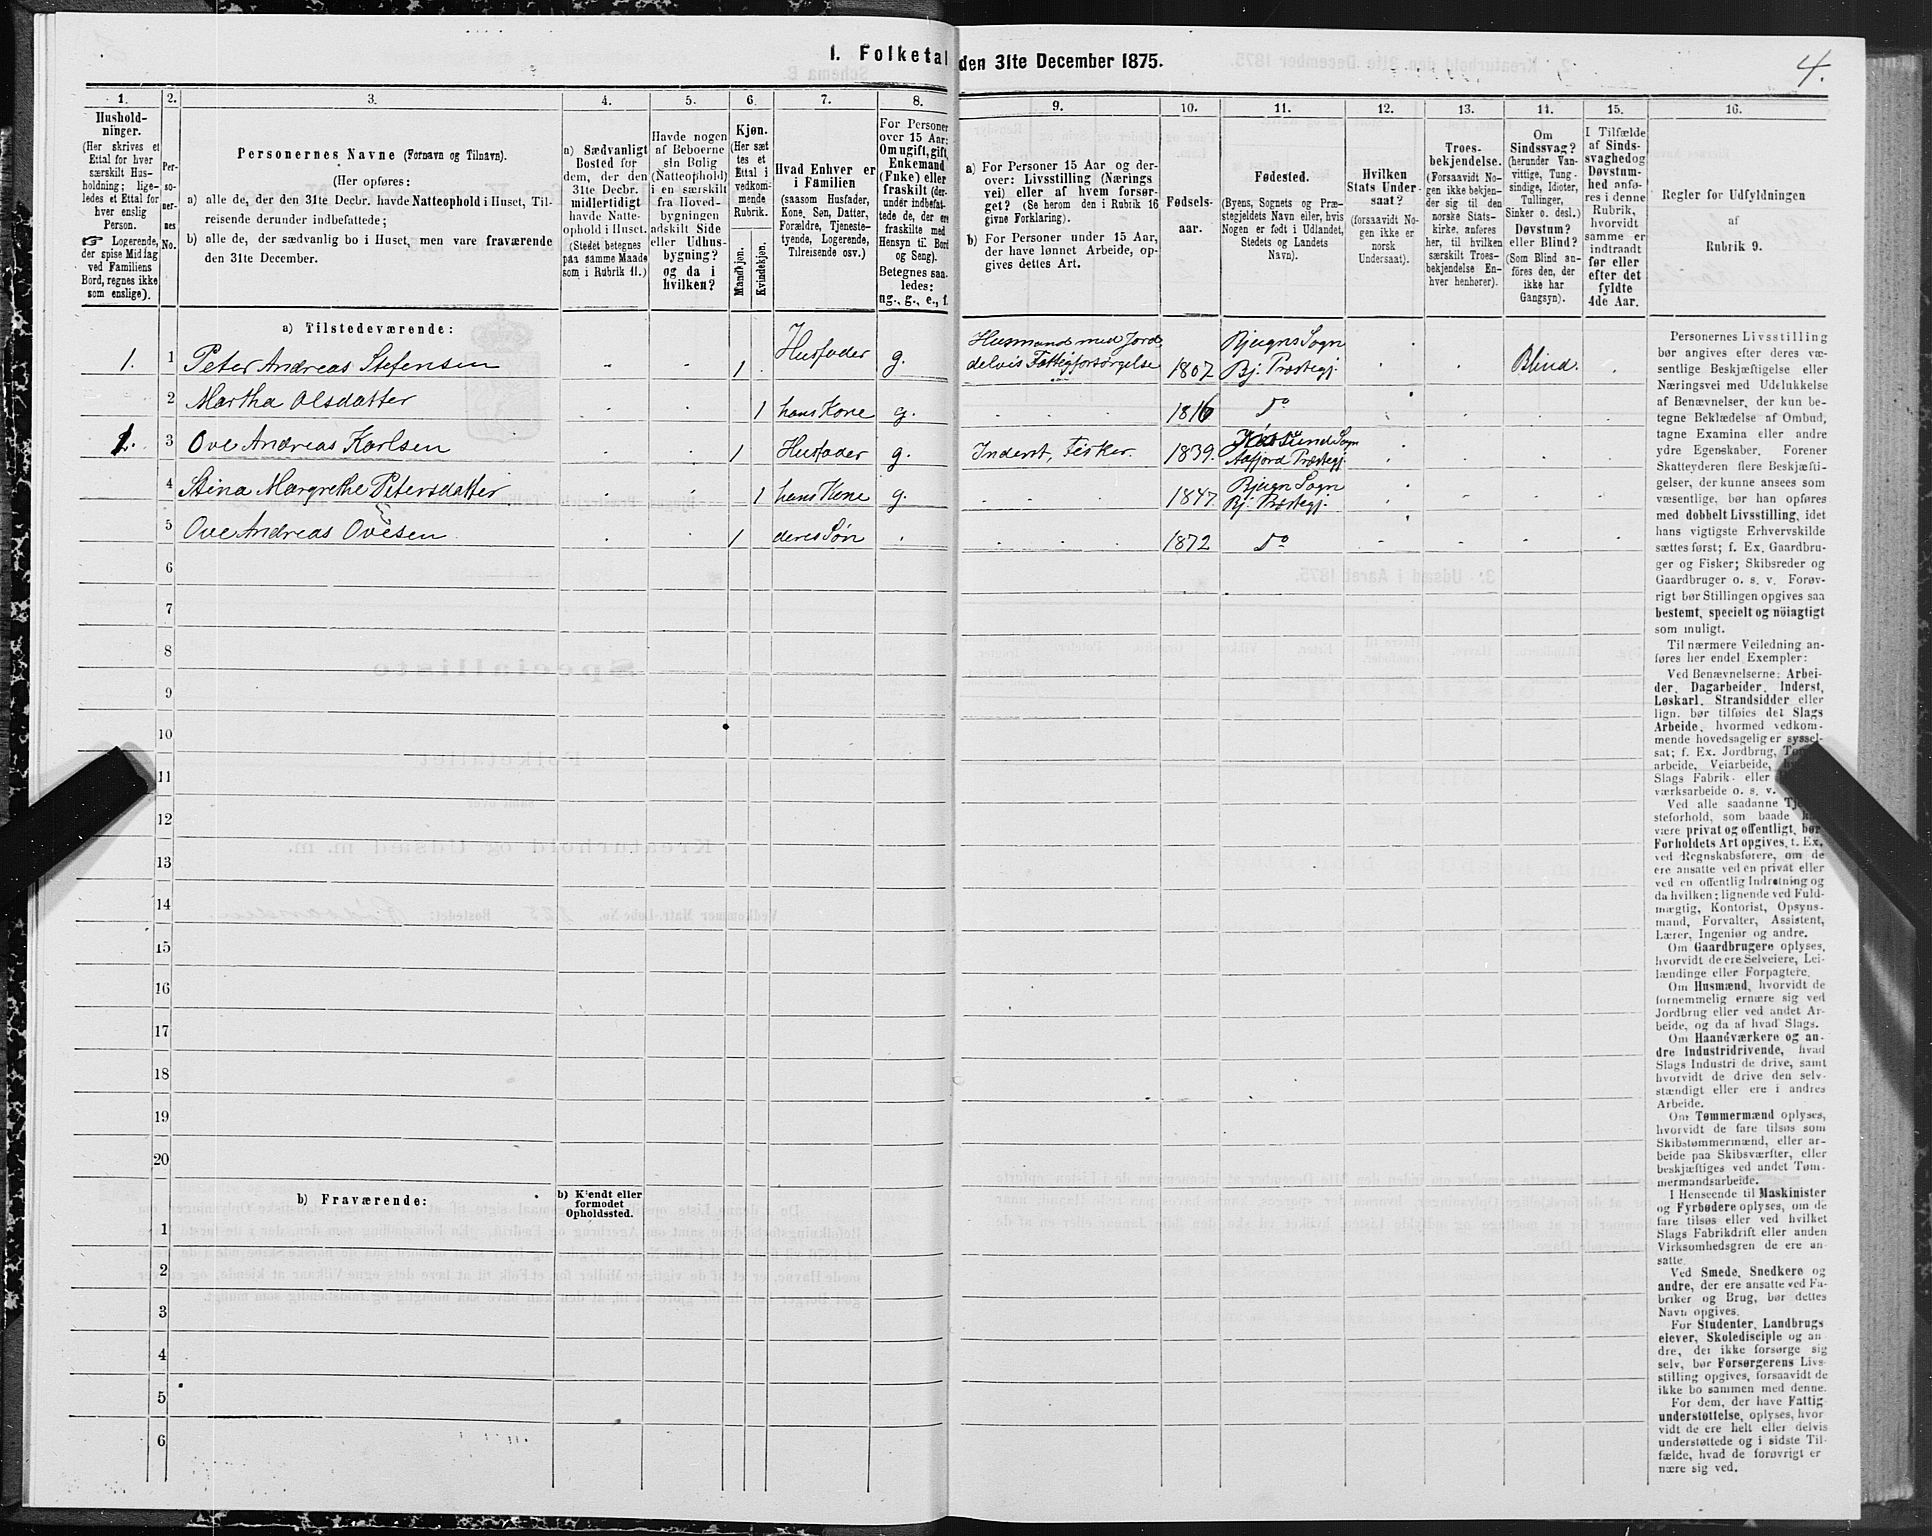 1. Folketal den 31te December 1875.
4.
1. 2. 3. 4. 5. 6. 7. 8. 9. 10. 11. 12. 13. 14. 15. 16.
Hushold-
ninger.
(Her skrives et
Ettal for hver
særskilt Hus-
holdning; lige-
ledes et Ettal for
hver enslig
Person.
☞ Logerende,
der spise Middag
ved Familiens
Bord, regnes ikke
som enslige).
Per-
so-
ner-
nes
No.
Personernes Navne (Fornavn og Tilnavn).
(Her opføres:
a) alle de, der den 31te Decbr. havde Natteophold i Huset, Til-
reisende derunder indbefattede;
b) alle de, der sædvanlig bo i Huset, men vare fraværende
den 31te December.
a) Sædvanligt
Bosted for
dem, der den
31te Decbr.
midlertidigt
havde Natte-
ophold i Huset.
(Stedet betegnes
paa samme Maade
som i Rubrik 11.)
Havde nogen
af Beboerne
sin Bolig
(Natteophold)
i en særskilt
fra Hoved-
bygningen
adskilt Side
eller Udhus-
bygning?
og da i
hvilken?
Kjøn.
(Her sæt
tes et
Ettal i
vedkom-
mende
Rubrik.
Mandkjøn.
Kvindekjøn.
Hvad Enhver er
i Familien
(saasom Husfader,
Kone, Søn, Datter,
Forældre, Tjeneste-
tyende, Logerende,
Tilreisende osv.)
For Personer
over 15 Aar:
Om ugift, gift,
Enkemand
(Enke) eller
fraskilt (der-
under indbefat-
tede de, der ere
fraskilte med
Hensyn til Bord
og Seng).
Betegnes saa-
ledes:
ug., g., e., f.
a) For Personer 15 Aar og der-
over: Livsstilling (Nærings
vei) eller af hvem forsør-
get? (Se herom den i Rubrik 16
givne Forklaring).
b) For Personer under 15 Aar,
der have lønnet Arbeide, op-
gives dettes Art.
Fødsels-
aar.
Fødested.
(Byens, Sognets og Præ-
stegjeldets Navn eller, hvis
Nogen er født i Udlandet,
Stedets og Landets
Navn).
Hvilken
Stats Under-
saat?
(forsaavidt No-
gen ikke er
norsk
Undersaat).
Troes-
bekjendelse.
(Forsaavidt No-
gen ikke bekjen-
der sig til den
norske Stats-
kirke, anføres
her, til hvilken
særskilt Troes-
bekjendelse En-
hver henhører).
Om
Sindssvag?
(herunder Van-
vittige, Tung-
sindige, Idioter,
Tullinger,
Sinker o. desl.)
Døvstum?
eller Blind?
(Som Blind an-
føres den, der
ikke har
Gangsyn).
I Tilfælde
af Sinds-
svaghed og
Døvstum-
hed anfø-
res i denne
Rubrik,
hvorvidt
samme er
indtraadt
før eller
efter det
fyldte
4de Aar.
Regler for Udfyldningen
af
Rubrik 9.
a) Tilstedeværende:
1. 1 Peter Andreas Stefensen 1 Husfader g. Husmand med Jord delvis Fattigforsørgelse 1807 Bjugns Sogn Bj. Præstegj. Blind.
2 Martha Olsdatter 1 hans Kone g. 1816 Do
1. 3 Ove Andreas Karlsen 1 Husfader g. Inderst, Fisker. 1839. Sogn Aafjord Præstegj.
4 Stina Margrethe Petersdatter 1 hans Kone g. 1847. Bjugn Sogn Bj. Præstegj.
5 Ove Andreas Ovesen 1 deres Søn 1872 Do
6
7
8
9
10
11
12
13
14
15
16
17
18
19
20
b) Fraværende:
b) Kjendt eller
formodet
Opholdssted.
1
2
3
4
5
6
Personernes Livsstilling
bør angives efter deres væ-
sentlige Beskjæftigelse eller
Næringsvei med Udelukkelse
af Benævnelser, der kun be-
tegne Beklædelse af Ombud,
tagne Examina eller andre
ydre Egenskaber. Forener
Skatteyderen flere Beskjæfti-
gelser, der kunne ansees som
væsentlige, bør han opføres
med dobbelt Livsstilling, idet
hans vigtigste Erhvervskilde
sættes først; f. Ex. Gaardbru-
ger og Fisker; Skibsreder og
Gaardbruger o. s. v. Forøv-
rigt bør Stillingen opgives saa
bestemt, specielt og nöiagtigt
som muligt.
Til nærmere Veiledning an-
føres her endel Exempler:
Ved Benævnelserne: Arbei-
der, Dagarbeider, Inderst,
Løskarl, Strandsidder eller
lign. bør tilføies det Slags
Arbeide, hvormed vedkom-
mende hovedsagelig er syssel-
sat; f. Ex. Jordbrug,
arbeide, Veiarbeide,
Slags Fabrik- eller
værksarbeide o. s. v.
Ved alle saadanne
steforhold, som baade
være privat og offentligt, bør
Forholdets Art opgives, f. Ex.
ved Regnskabsførere, om de
ere ansatte ved en privat eller
ved en offentlig Indretning og
da hvilken; lignende ved Fuld-
mægtig, Kontorist, Opsyns-
mand, Forvalter, Assistent,
Lærer, Ingeniør og andre.
Om Gaardbrugere oplyses,
hvorvidt de ere Selveiere, Lei-
lændinge eller Forpagtere.
Om Husmænd, hvorvidt de
fornemmelig ernære sig ved
Jordbrug eller ved andet Ar-
beide, og da af hvad Slags.
Om Haandværkere og an-
dre Industridrivende, hvad
Slags Industri de drive, samt
hvorvidt de drive den selv-
stændigt eller ere i andres
Arbeide.
Om Tømmermænd oplyses,
hvorvidt de fare tilsøs som
Skibstømmermænd, eller ar-
beide paa Skibsværfter, eller
beskjæftiges ved andet Tøm-
mermandsarbeide.
I Henseende til Maskinister
og Fyrbødere oplyses, om de
fare tilsøs eller ved hvilket
Slags Fabrikdrift eller anden
Virksomhedsgren de ere an-
satte.
Ved Smede, Snedkere og
andre, der ere ansatte ved Fa-
briker og Brug, bør dettes
Navn opgives.
For Studenter, Landbrugs
elever, Skoledisciple og an-
dre, der ikke forsørge sig
selv, bør Forsørgerens Livs-
stilling opgives, forsaavidt de
ikke bo sammen med denne.
For dem, der have Fattig
understøttelse, oplyses, hvor
vidt de ere helt eller delvis
understøttede og i sidste Til-
fælde, hvad de forøvrigt er
nære sig ved.